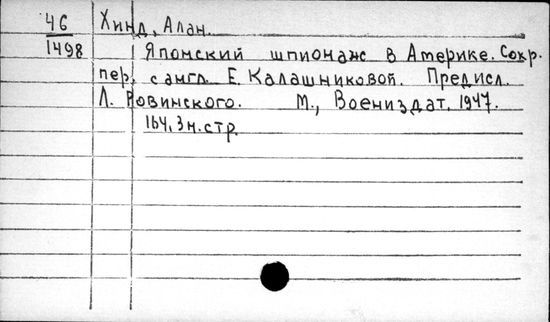 46
1498
Хинд, Алан.
Японский шпионаж в Америке. Сокр.
пер. с англ. Е. Калашниковой. Предисл.
Л. Ровинского. М., Воениздат, 1947.
164, 3 н. стр.